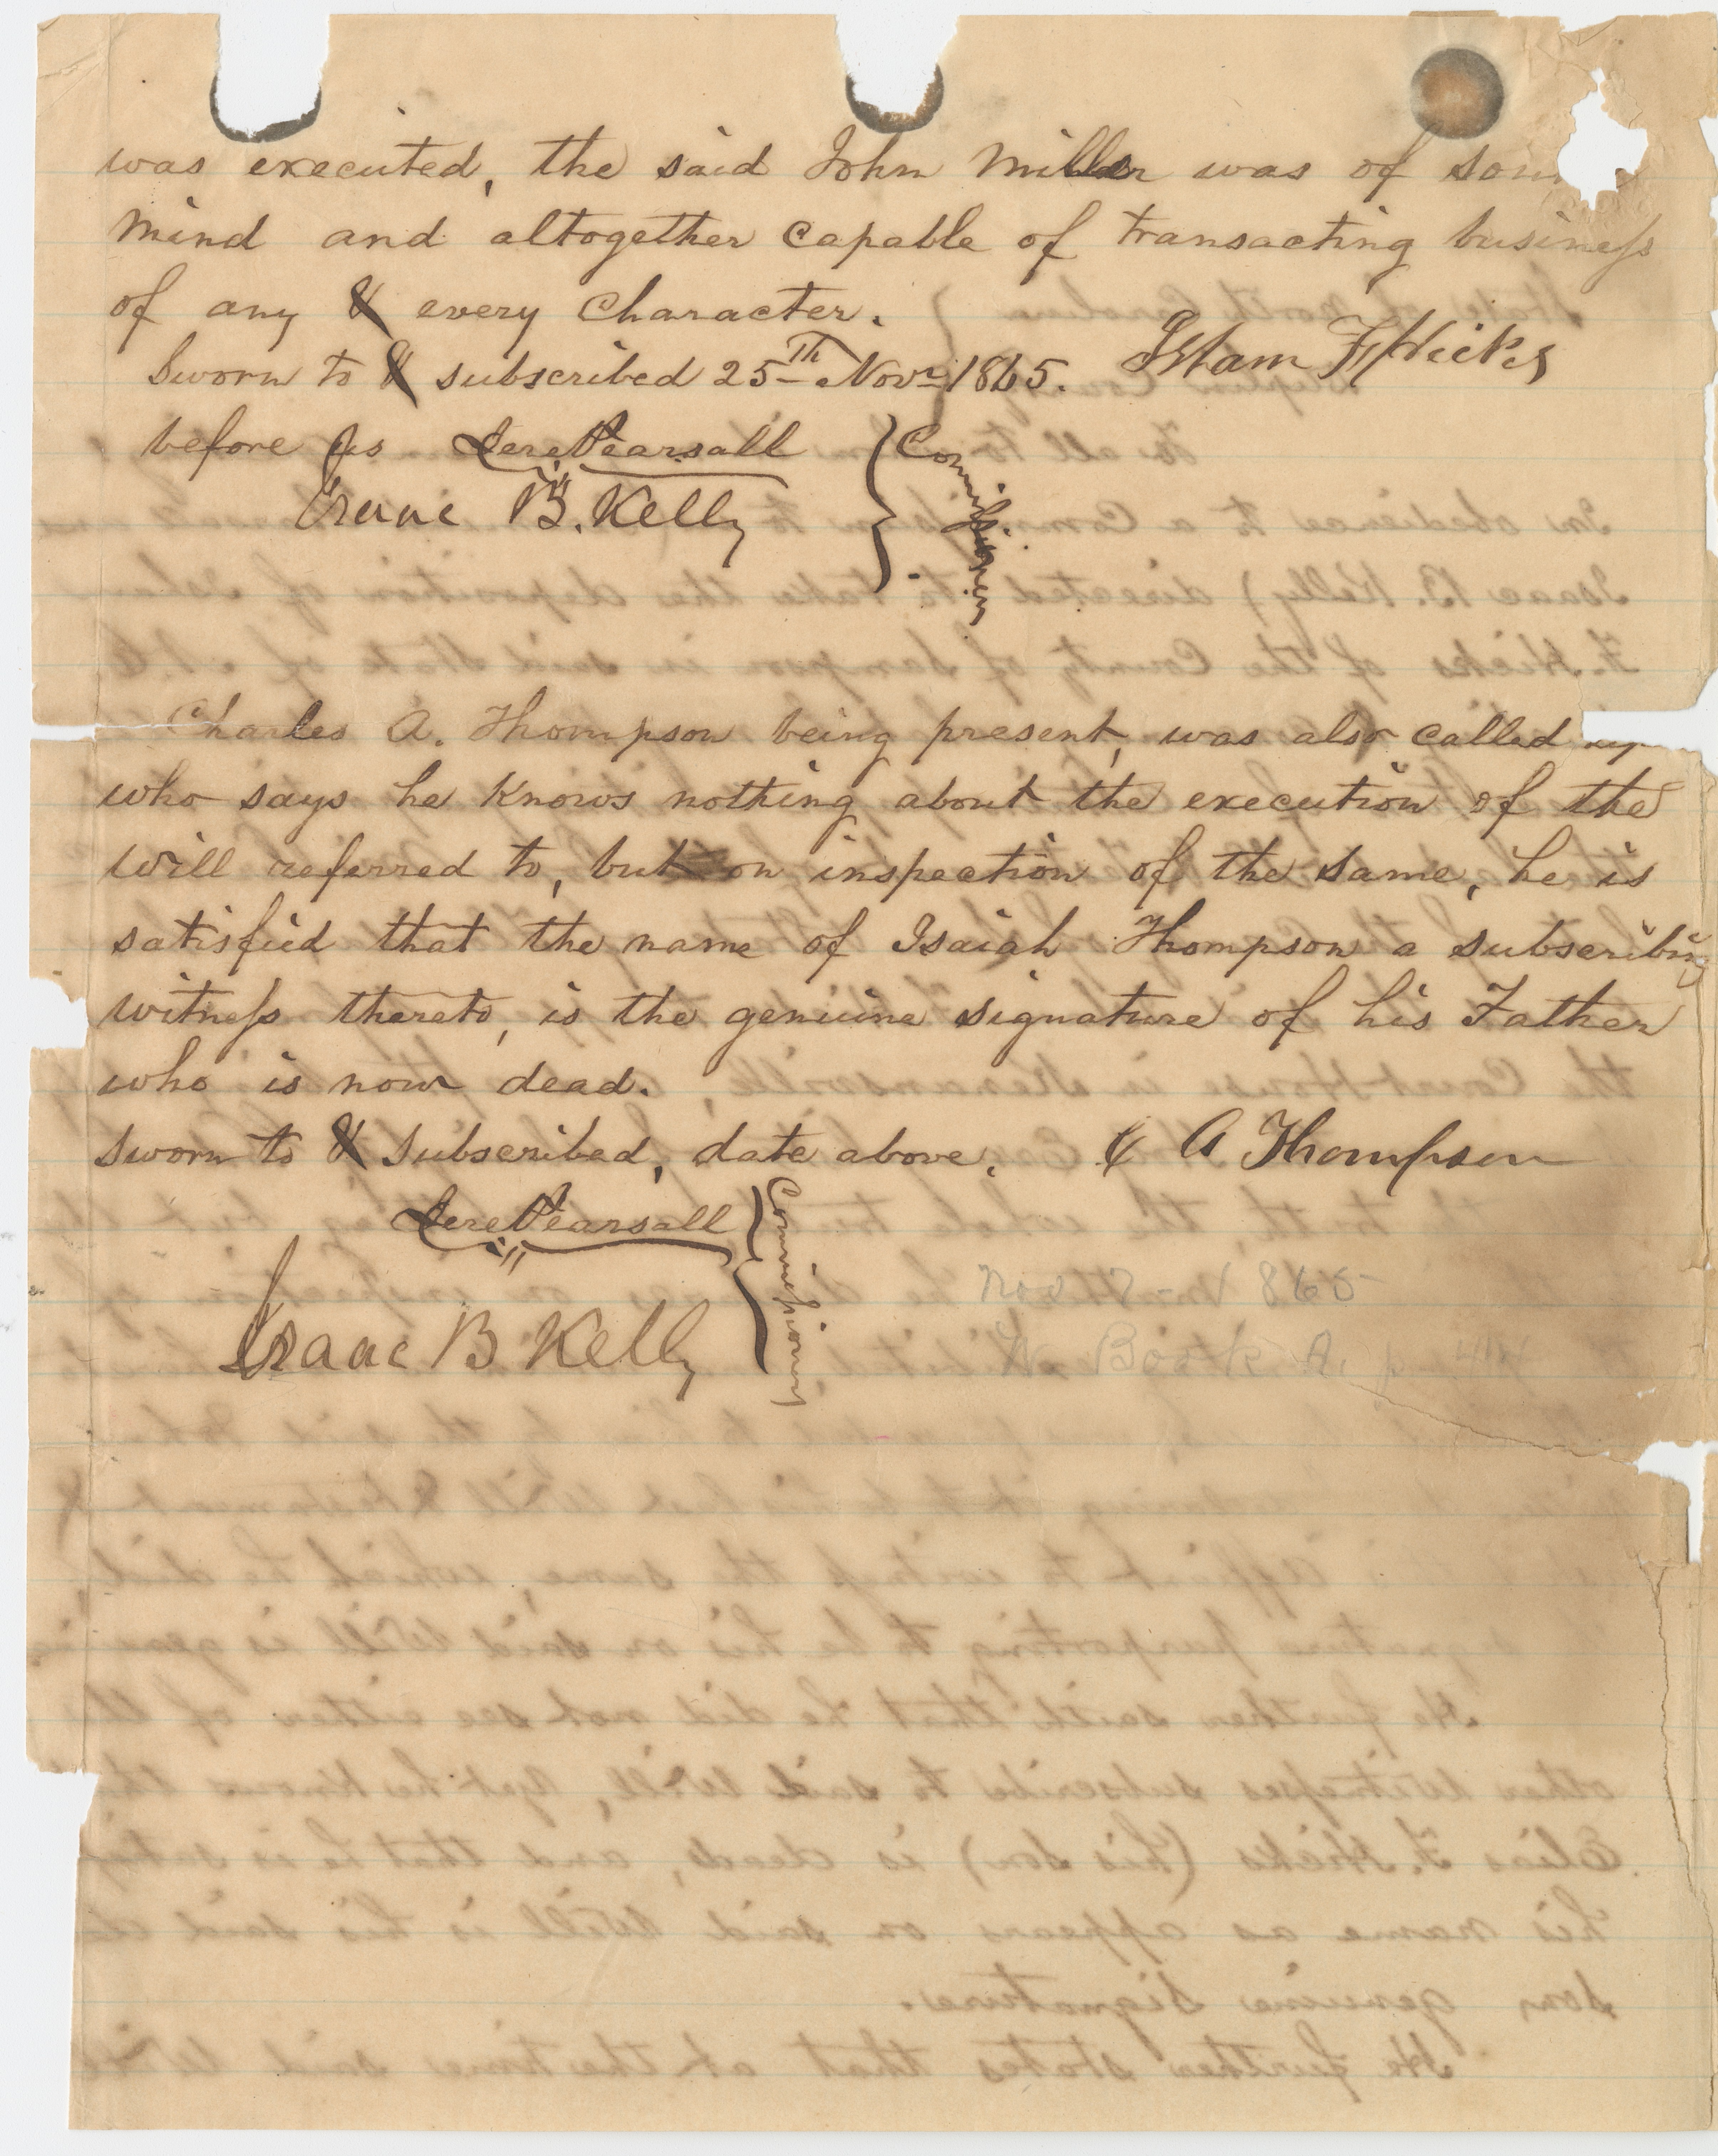 was executed, the said John Miller was of
mind and altogether capable of transacting business
of any & every Character.
Sworn to & subscribed 25th Novr 1865. Isham F Hicks
before us Jere Pearsall } Commissioners
Isaac B. Kelly
Charles A. Thompson being present, was also called up
who says he Knows nothing about the execution of the
will referred to, but on inspection of the same, he is
satisfied that the name of Isaiah Thompson a subscribing
witness thereto, is the genuine signature of his Father
who is now dead.
Sworn to & Subscribed, date above. C A Thompson
Jere Pearsall } Commissioners
Isaac B Kelly
Nov 1865
W. Book A. p